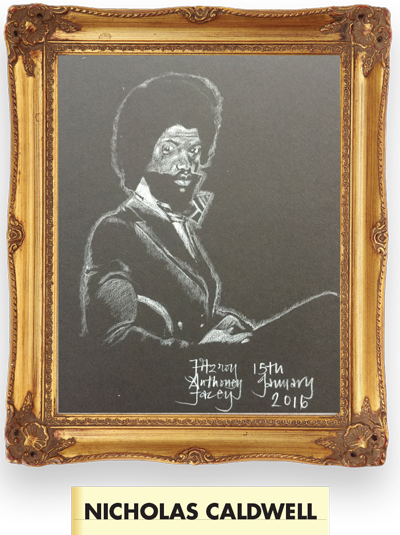 Fitzroy 15th
Anthoney January
Facey 2016
NICHOLAS CALDWELL